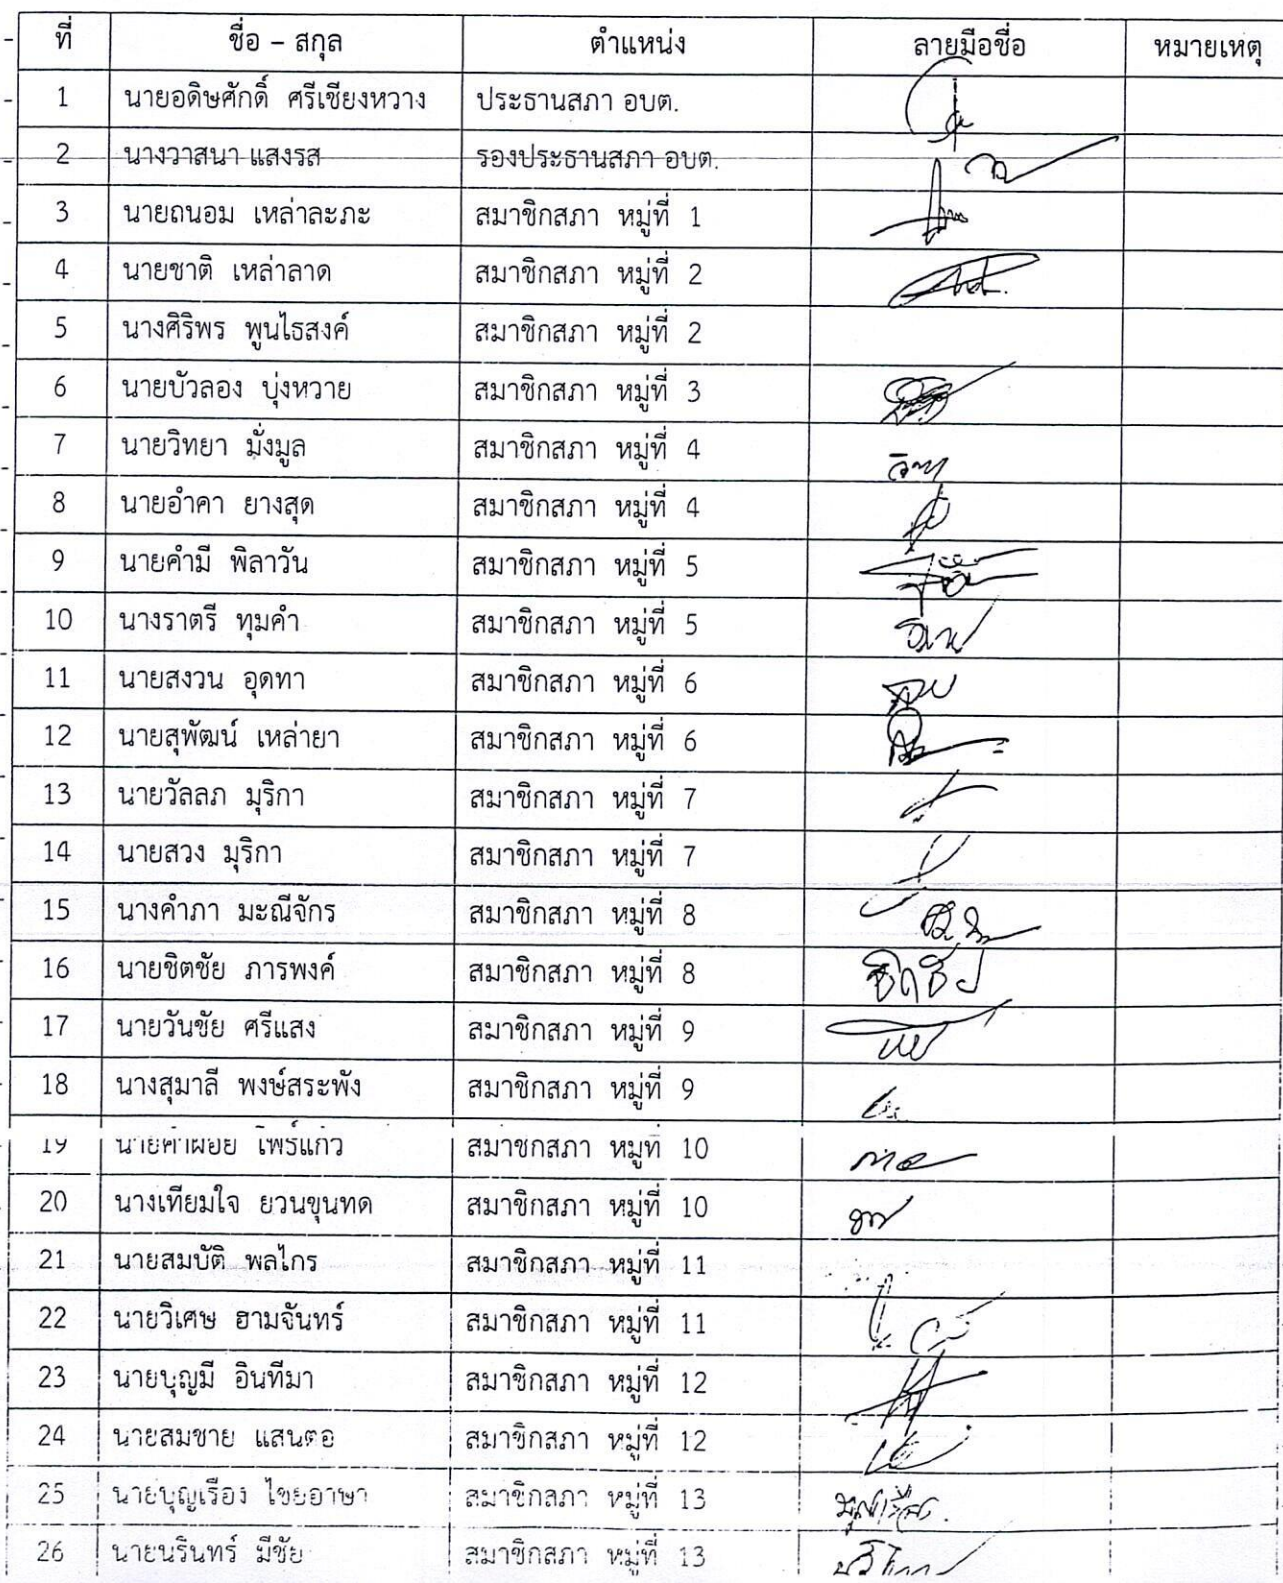 ที่ ชื่อ – สกุล ตำแหน่ง ลายมือชื่อ หมายเหตุ
1 นายอดิษศักดิ์ ศรีเชียงหวาง ประธานสภา อบต.
2 นางวาสนา แสงรส รองประธานสภา อบต.
3 นายถนอม เหล่าละภะ สมาชิกสภา หมู่ที่ 1
4 นายชาติ เหล่าลาด สมาชิกสภา หมู่ที่ 2
5 นางศิริพร พูนไธสงค์ สมาชิกสภา หมู่ที่ 2
6 นายบัวลอง บุ่งหวาย สมาชิกสภา หมู่ที่ 3
7 นายวิทยา มั่งมูล สมาชิกสภา หมู่ที่ 4
8 นายอำคา ยางสุด สมาชิกสภา หมู่ที่ 4
9 นายคำมี พิลาวัน สมาชิกสภา หมู่ที่ 5
10 นางราตรี ทุมคำ สมาชิกสภา หมู่ที่ 5
11 นายสงวน อุดทา สมาชิกสภา หมู่ที่ 6
12 นายสุพัฒน์ เหล่ายา สมาชิกสภา หมู่ที่ 6
13 นายวัลลภ มุริกา สมาชิกสภา หมู่ที่ 7
14 นายสวง มุริกา สมาชิกสภา หมู่ที่ 7
15 นางคำภา มะณีจักร สมาชิกสภา หมู่ที่ 8
16 นายชิตชัย ภารพงค์ สมาชิกสภา หมู่ที่ 8 ชิตชัย
17 นายวันชัย ศรีแสง สมาชิกสภา หมู่ที่ 9
18 นางสุมาลี พงษ์สระพัง สมาชิกสภา หมู่ที่ 9
19 นายคำผอย โพธิ์แก้ว สมาชิกสภา หมู่ที่ 10
20 นางเทียมใจ ยวนขุนทด สมาชิกสภา หมู่ที่ 10
21 นายสมบัติ พลไกร สมาชิกสภา หมู่ที่ 11
22 นายวิเศษ ฮามจันทร์ สมาชิกสภา หมู่ที่ 11
23 นายบุญมี อินทีมา สมาชิกสภา หมู่ที่ 12
24 นายสมชาย แสนตอ สมาชิกสภา หมู่ที่ 12
25 นายบุญเรือง ไชยอาษา สมาชิกสภา หมู่ที่ 13 บุญเรือง
26 นายนรินทร์ มีชัย สมาชิกสภา หมู่ที่ 13